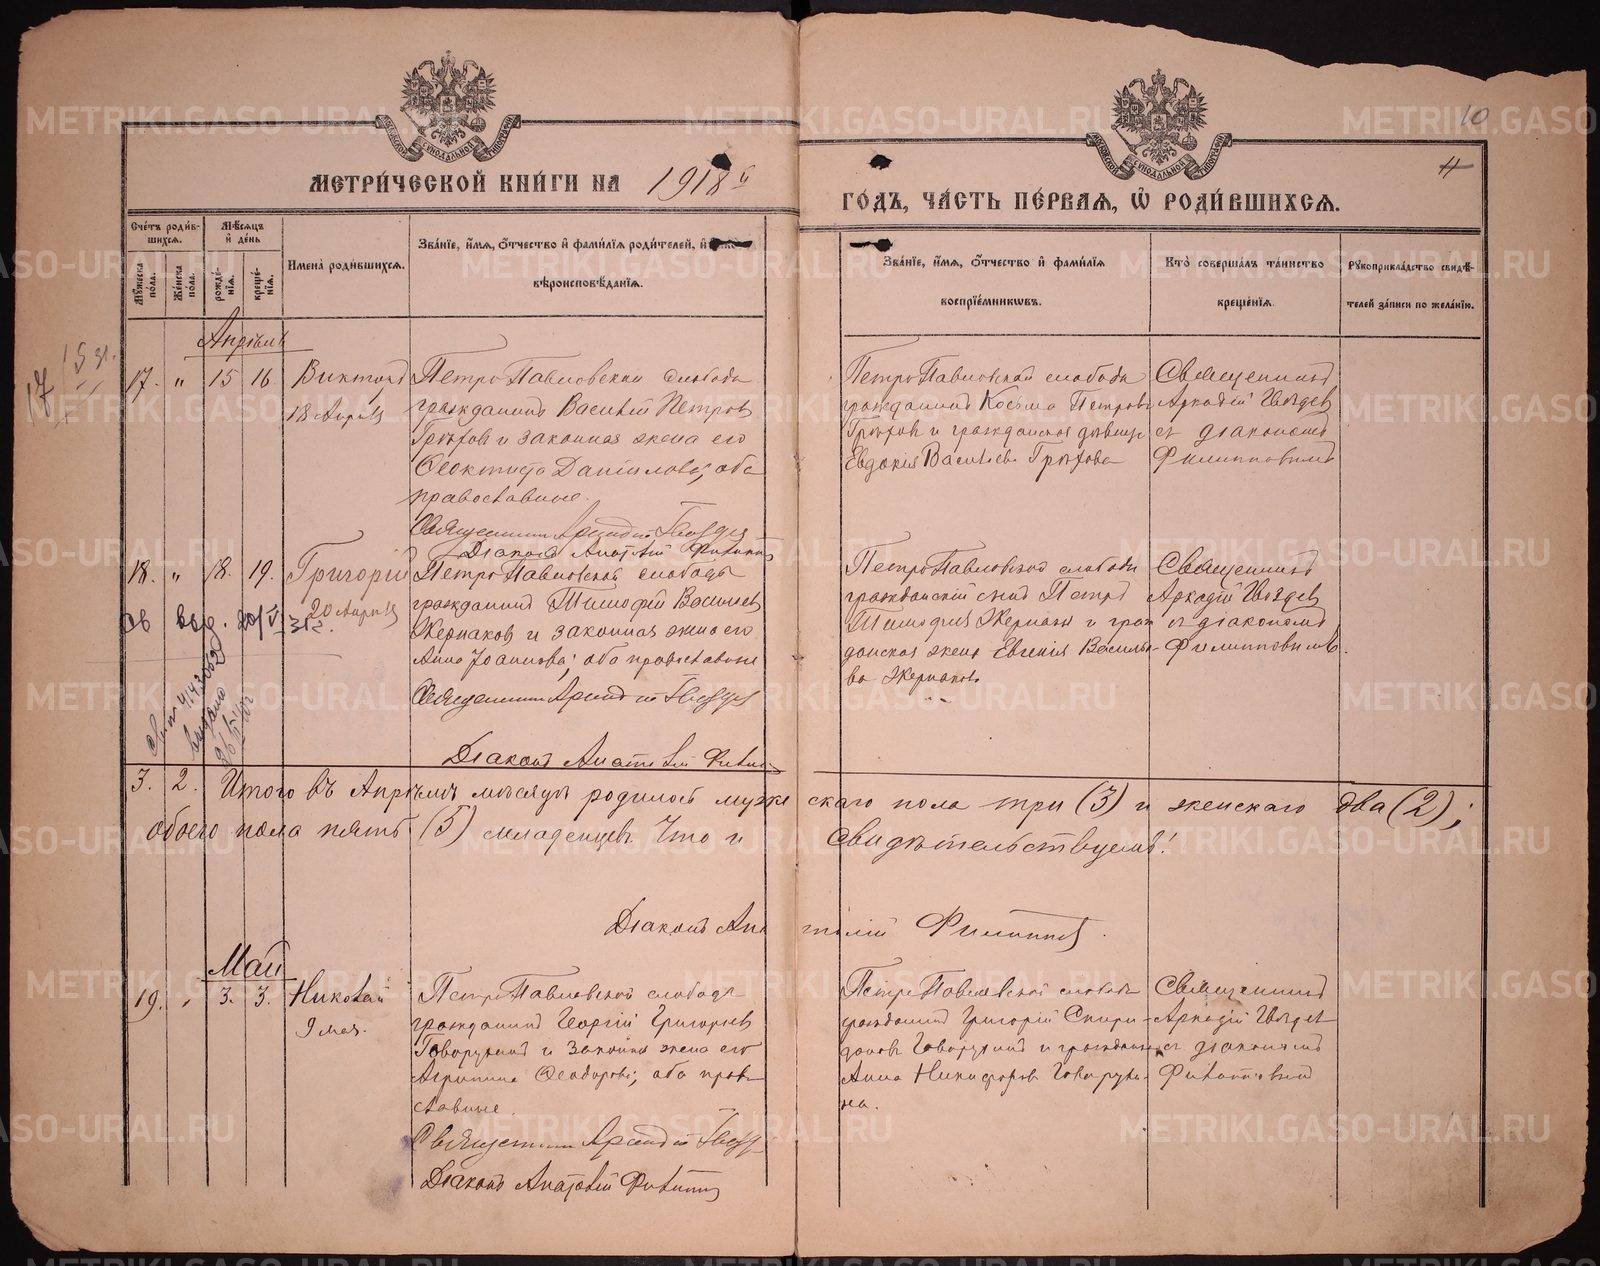 10
11
МЕТРИ́ЧЕСКОЙ КНИ́ГИ НА 1918й
ГО́ДЪ, ЧА́СТЬ ПЕ́РВАЯ, Ѡ РОДИ́ВШИХСЯ.
Сче́тъ роди́в-
шихся.
Му́жеска по́ла.
Же́нска по́ла.
Мѣ́сяцъ и де́нь
рожде́нія.
креще́нія.
Имена̀ роди́вшихся.
Зва́ніе, и́мя, о́тчество и фами́лія роди́телей, и
вѣроисповѣ́данія.
Зва́ніе, и́мя, о́тчество и фами́лія
воспріе́мниковъ.
Кто̀ соверша́лъ та́инство
креще́нія.
Рукоприкла́дство свидѣ́-
телей за́писи по жела́нію.
Апрѣль
17
17. " 15 16 Викторъ
18 Апрѣля
Петро Павловской слободы
гражданинъ Василій Петровъ
Грѣховъ и законная жена его
Ѳеоктиста Данилова; оба
православные.
Священникъ Аркадій Гвоздевъ
Діаконъ Анатолій Филипповъ
Петро Павловской слободы
гражданинъ Косьма Петровъ
Грѣховъ и гражданская дѣвица
Евдокія Васильева Грѣхова
Священникъ
Аркадій Гвоздевъ
съ діакономъ
Филипповымъ
18. " 18. 19. Григорій
20 Апрѣля
Петро Павловской слободы
гражданинъ Тимофей Васильевъ
Жернаковъ и законная жена его
Анна Іоаннова; оба православные
Священникъ Аркадій Гвоздевъ
Діаконъ Анатолій Филипповъ
Петро Павловской слободы
гражданскій сынъ Петръ
Тимофеевъ Жернаковъ и граж
данская жена Евгенія Василье-
ва Жернакова
Священникъ
Аркадій Гвоздевъ
съ діакономъ
Филипповымъ.
Св выд. 20/V 31г.
выдана
3. 2. Итого въ Апрѣлѣ мѣсяцѣ родилось мужескаго пола три (3) и женскаго два (2);
обоего пола пять (5) младенцевъ. Что и свидѣтельствуемъ!
Діаконъ Анатолій Филипповъ.
Май
19. " 3. 3. Николай
9 мая.
Петро Павловской слободы
гражданинъ Георгій Григорьевъ
Говорухинъ и законная жена его
Агрипина Ѳеодорова; оба право-
славные.
Священникъ Аркадій Гвоздевъ
Діаконъ Анатолій Филипповъ
Петро Павловской слободы
гражданинъ Григорій Спири-
доновъ Говорухинъ и гражданка
Анна Никифорова Говорухи-
на.
Священникъ
Аркадій Гвоздевъ
съ діакономъ
Филипповымъ
METRIKI.GASO-URAL.RU